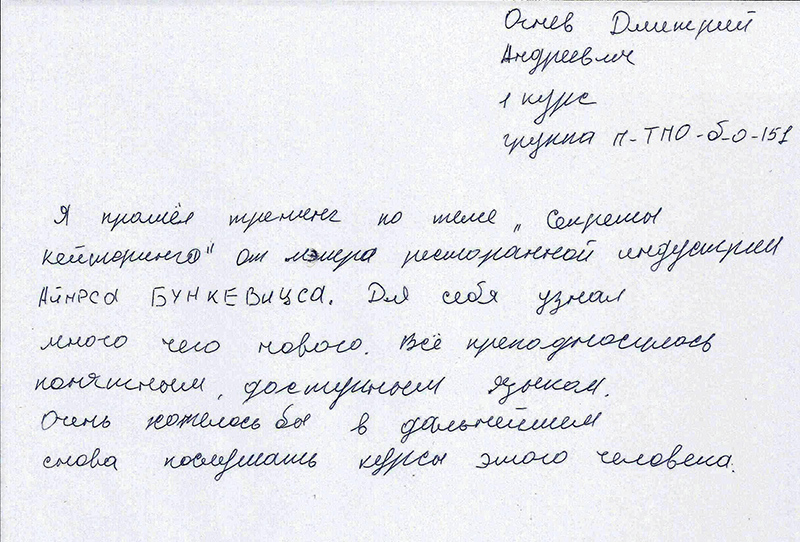 Огнев Дмитрий
Андреевич
1 курс
группа П-ТПО-б-о-151
Я прошёл тренинг по теме „Секреты
кейторинга" от мэтра ресторанной индустрии
Айнрса Бункевицса. Для себя узнал
много чего нового. Всё преподносилось
понятным, доступным языком.
Очень хотелось бы в дальнейшем
снова послушать курсы этого человека.